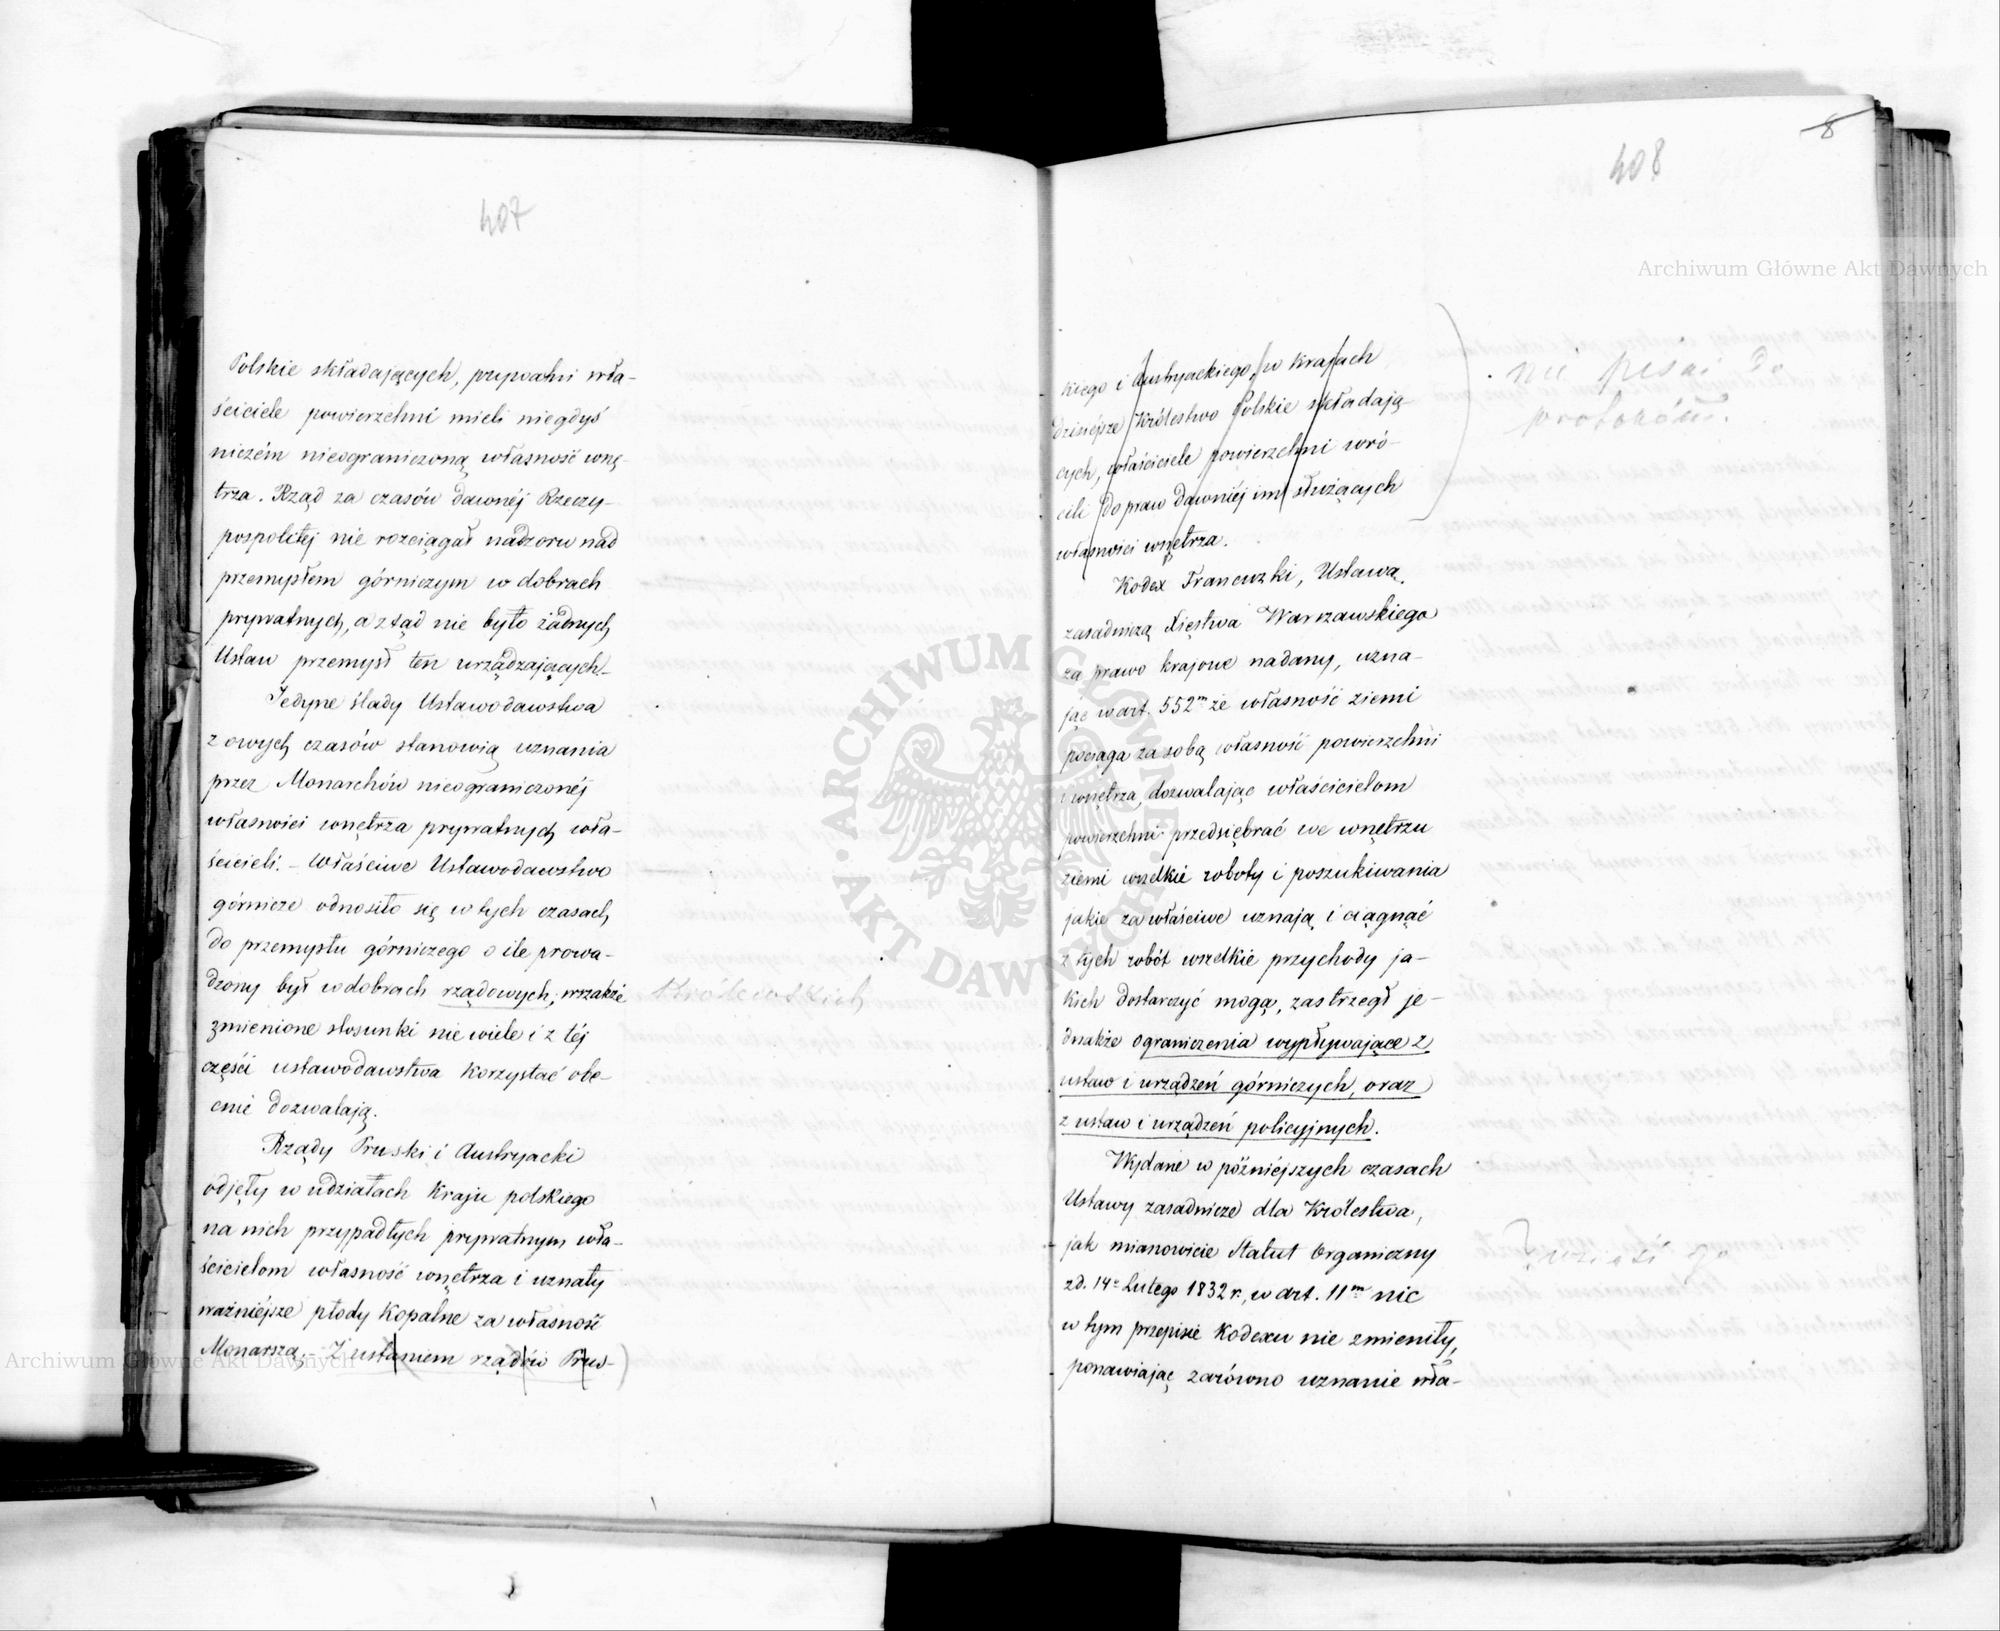 407
Polskie składających, prywatni wła-
ściciele powierzchni mieli niegdyś
niczém nieograniczoną własność wnę-
trza. Rząd za czasów dawnéj Rzeczy-
pospolitéj nie rozciągał nadzoru nad
przemysłem górniczym w dobrach
prywatnych, a ztąd nie było żadnych
Ustaw przemysł ten urządzających.-
Jedyne ślady Ustawodawstwa
z owych czasów stanowią uznania
przez Monarchów nieograniczonéj
własności wnętrza prywatnych wła-
ścicieli. - Właściwe Ustawodawstwo
górnicze odnosiło się w tych czasach
do przemysłu górniczego o ile prowa-
dzony był w dobrach rządowych; wszakże
Królewskich
zmienione stosunki nie wiele i z téj
części ustawodawstwa korzystać obe-
cnie dozwalają.
Rządy Pruski i Austryacki
odjęły w udziałach Kraju polskiego
na nich przypadłych prywatnym wła-
ścicielom własność wnętrza i uznały
ważniejsze płody kopalne za własność
Monarszą. - Z ustaniem rządów Prus-
8
408
kiego i Austryackiego, w krajach
dzisiejsze Królestwo Polskie składają-
cych, właściciele powierzchni wró-
cili do praw dawniéj im służących
własności wnętrza.
nie pisać do
protokółu.
Kodex Francuzki, Ustawą
zasadniczą Xięstwa Warszawskiego
za prawo krajowe nadany, uzna-
jąc w art. 552m że własność ziemi
pociąga za sobą własność powierzchni
i wnętrza, dozwalając właścicielom
powierzchni przedsiębrać we wnętrzu
ziemi wszelkie roboty i poszukiwania
jakie za właściwe uznają i ciągnąć
z tych robót wszelkie przychody ja-
kich dostarczyć mogą, zastrzegł je-
dnakże ograniczenia wypływające z
ustaw i urządzeń górniczych, oraz
z ustaw i urządzeń policyjnych.
Wydane w późniéjszych czasach
Ustawy zasadnicze dla Królestwa,
jak mianowicie Statut Organiczny
z d. 14° Lutego 1832 r., w art. 11m nic
w tym przepisie Kodexu nie zmieniły,
ponawiając zarówno uznanie wła-
Archiwum Główne Akt Dawnych
Archiwum Główne Akt Dawnych
· ARCHIWUM GŁÓWNE · AKT DAWNYCH